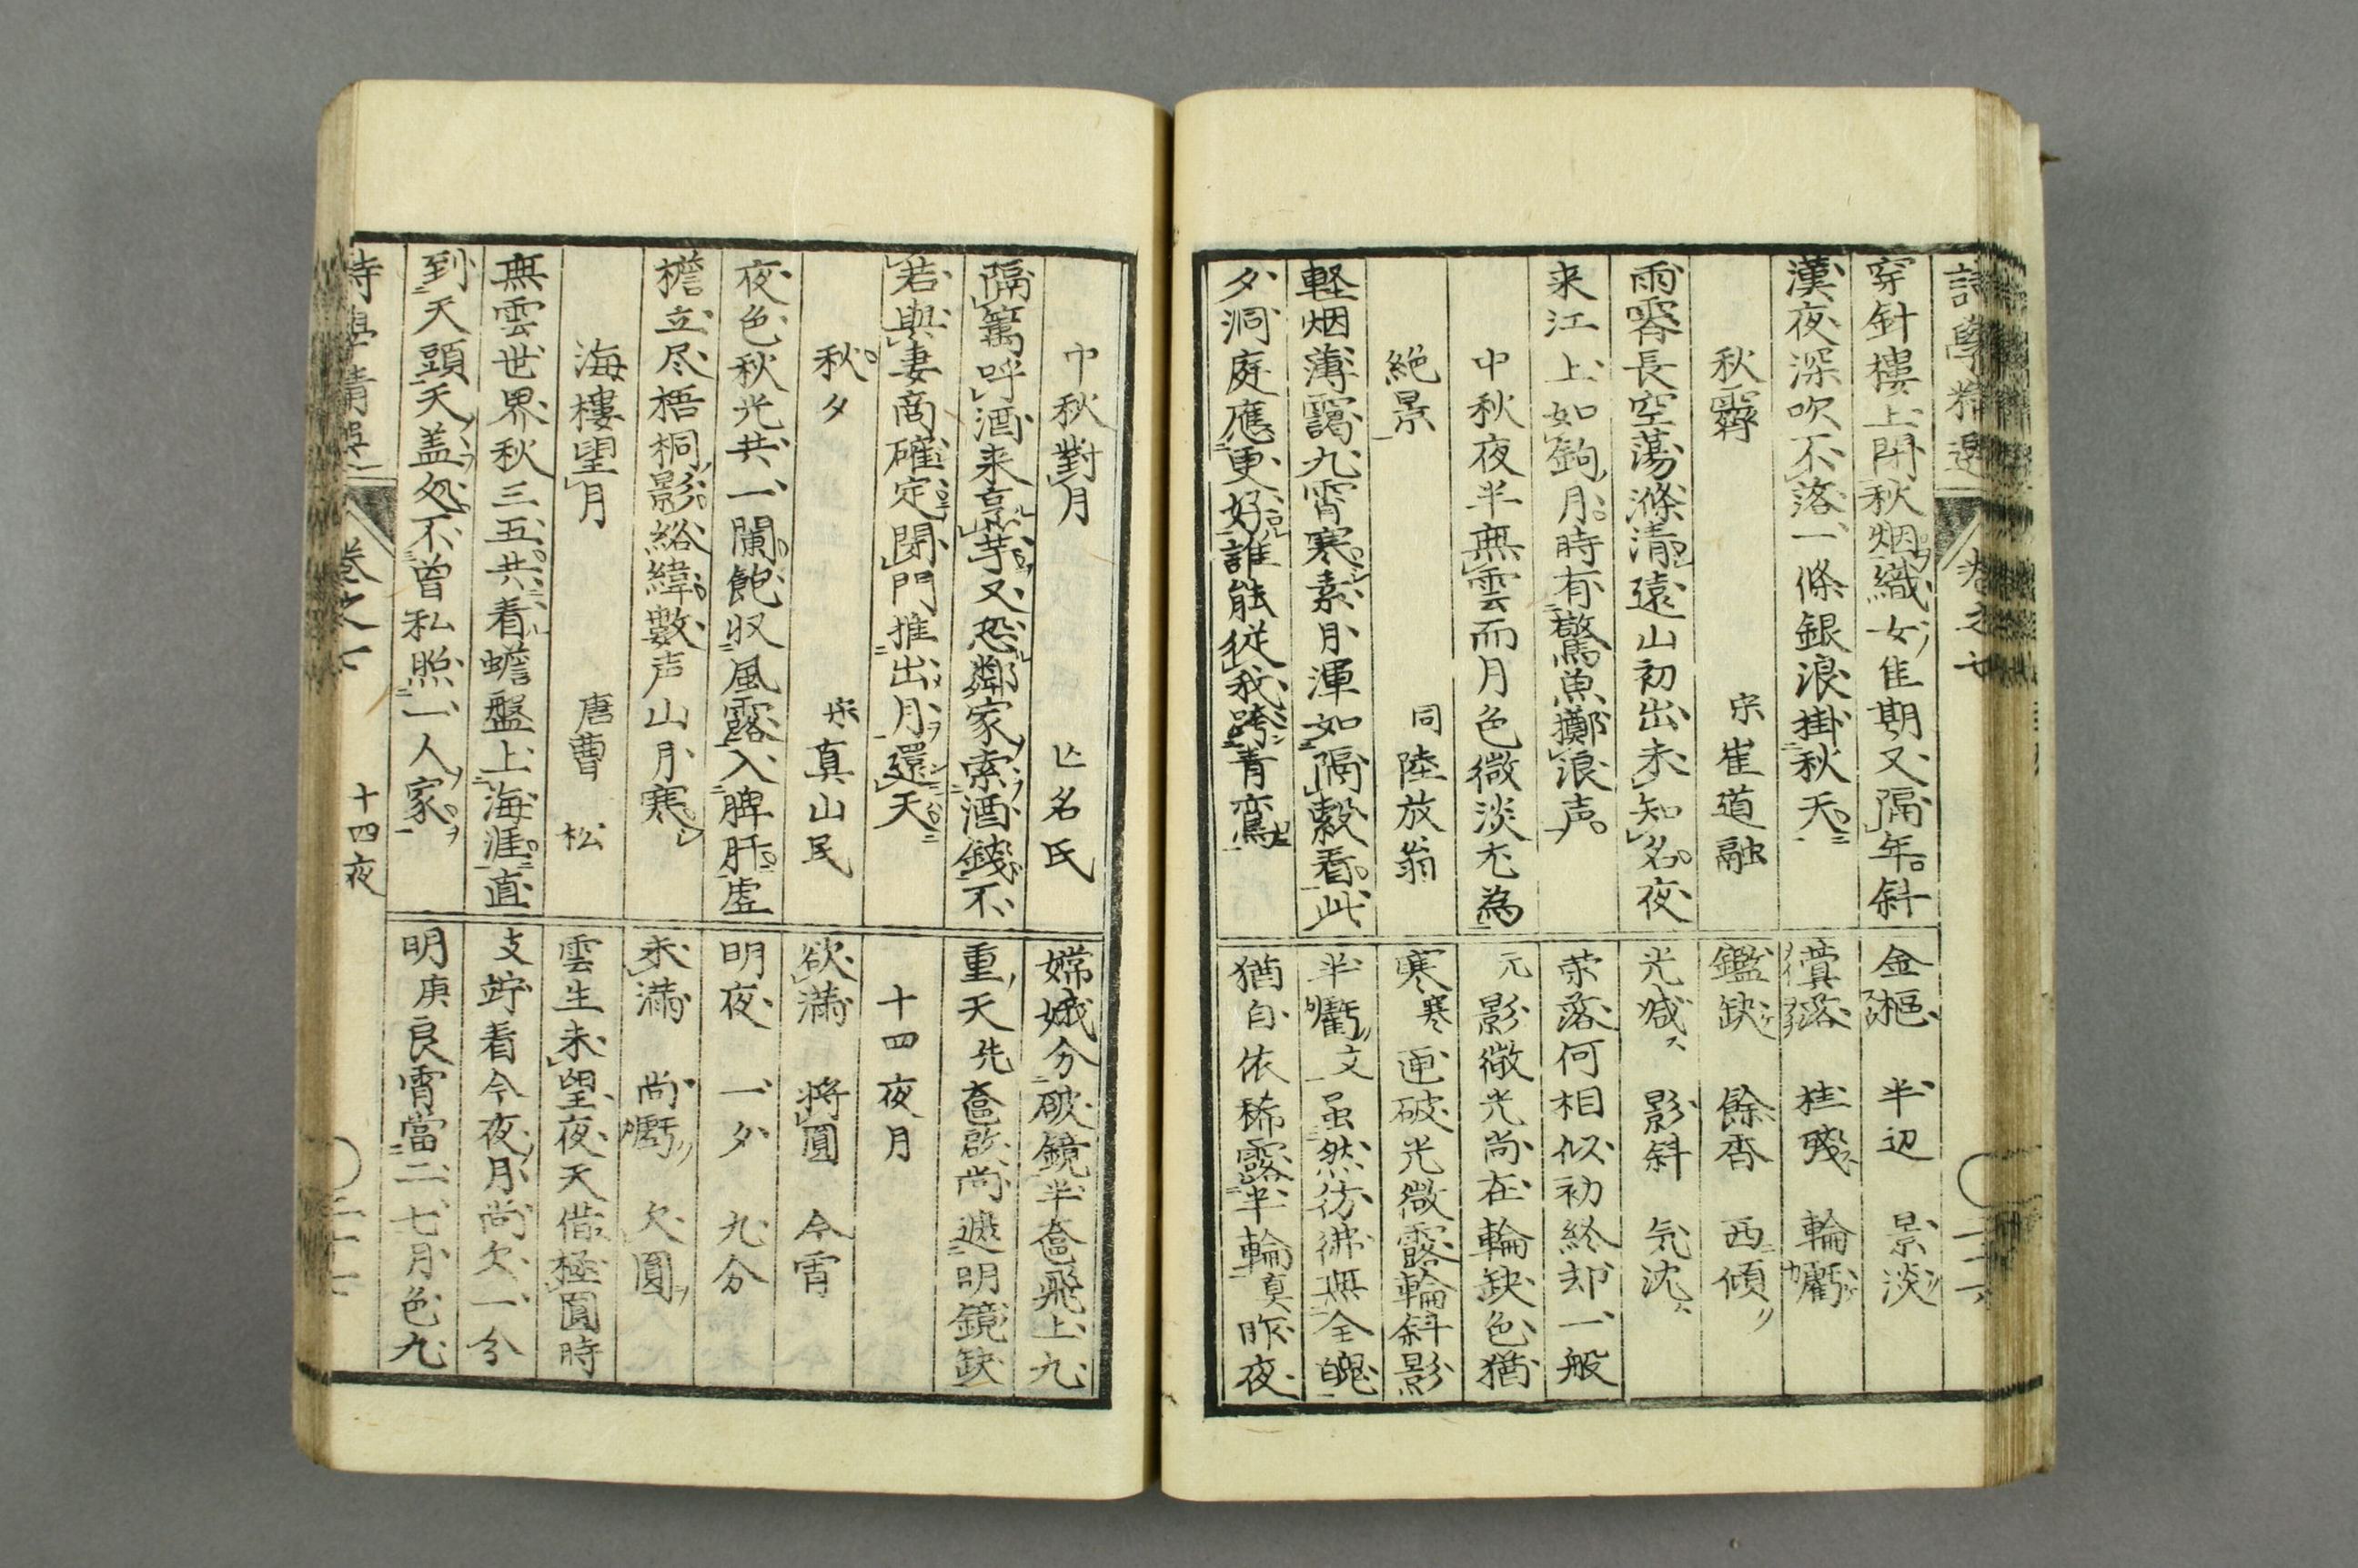 詩學精選 卷之七
穿針樓上閉秋烟織女隹期又隔年斜
漢夜深吹不落一條銀浪掛秋天
秋霽 宋崔道融
雨霽長空蕩滌清遠山初出未知名夜
来江上如鉤月時有驚魚擲浪声
中秋夜半無雲而月色微淡尤為
絶景 同陸放翁
軽烟薄靄九霄寒素月渾如隔縠看此
夕洞庭應更好誰能従我跨青鸞
金樞 半辺 景淡
蓂落 桂殘 輪虧
鑑缺 餘香 西傾
光减 影斜 気沈
蓂落何相似初終却一般
元影微光尚在輪缺色猶
寒寒匣破光微露輪斜影
半虧文虽然彷彿無全魄
猶自依稀露半輪真昨夜
中秋對月 亡名氏
隔篱呼酒来烹芋又恐鄰家索酒錢不
若與妻商確定閉門推出月還天
秋夕 宋真山民
夜色秋光共一闌飽収風露入脾肝虛
檐立尽梧桐影絡緯數声山月寒
海樓望月 唐曹松
無雲世界秋三五共看蟾盤上海涯直
到天頭天盖処不曽私照一人家
嫦娥分破鏡半奩飛上九
重天先奩啟尚遮明鏡缺
十四夜月
欲滿 將圓 今宵
明夜 一夕 九分
未滿 尚虧 欠圓
雲生未望夜天借極圓時
支竚看今夜月尚欠一分
明庚良宵當二七月色九
詩學精選 卷之七 十四夜 二十七